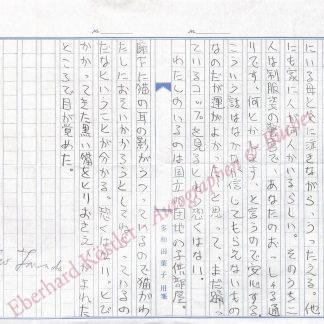 にいる母と父に泣きながら、うったえる。他
にも家に人が何人かいるらしい。そのうち二
人は制服姿の警官で、あなたのおっしゃる通
りです、何とかしよう、と言うので安心する。
こういう話はなかなか信じてもらえないもの
なのだが運がよかった、と思って、まだ踊っ
ているコップを見るともう恐くはない。
わたしのいるのは国立の団地の子供部屋。
多和田葉子用箋
廊下に猫の耳の影がうつっているので猫がわ
たしにおそいかかろうとして、っているの
だなということが分かる。恐くない。とび
かかってきた黒い猫をとりおさえ、まれた
ところで目が覚めた。
Eberhard Köstler · Autographen & Bücher